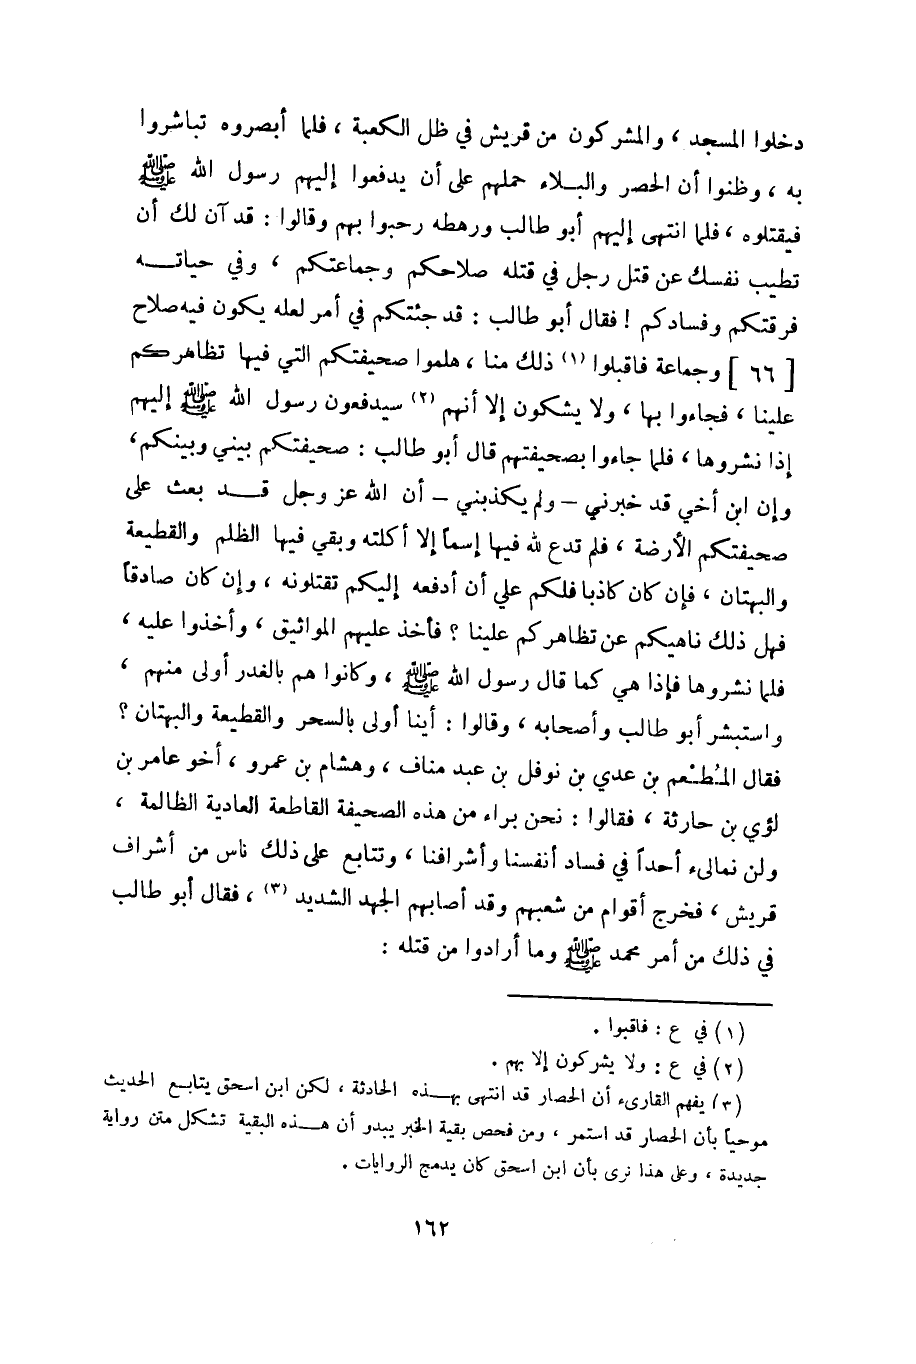 دخلوا المسجد ، والمشركون من قريش في ظل الكعبة ، فلما أبصروه تباشروا
به ، وظنوا أن الحصر والبـلاء حملهم على أن يدفعوا إليهم رسول الله ﷺ
فيقتلوه ، فلما انتهى إليهم أبو طالب ورهطه رحبوا بهم وقالوا : قد آن لك أن
تطيب نفسك عن قتل رجل في قتله صلاحكم وجماعتكم ، وفي حياتـــه
فرقتكم وفسادكم ! فقال أبو طالب : قد جئتكم في أمر لعله يكون فيه صلاح
[ ٦٦ ] وجماعة فاقبلوا (١) ذلك منا ، هلموا صحيفتكم التي فيها تظاهركم
علينا ، فجاءوا بها ، ولا يشكون إلا أنهم (٢) سيدفعون رسول الله ﷺ إليهم
إذا نشروها ، فلما جاءوا بصحيفتهم قال أبو طالب : صحيفتكم بيني وبينكم ،
وإن ابن أخي قد خبرني – ولم يكذبني – أن الله عز وجل قـــد بعث على
صحيفتكم الأرضة ، فلم تدع لله فيها إسماً إلا أكلته وبقي فيها الظلم والقطيعة
والبهتان ، فإن كان كاذبا فلكم علي أن أدفعه إليكم تقتلونه ، وإن كان صادقاً
فهل ذلك ناهيكم عن تظاهركم علينا ؟ فأخذ عليهم المواثيق ، وأخذوا عليه ،
فلما نشروها فإذا هي كما قال رسول الله ﷺ ، وكانوا هم بالغدر أولى منهم ،
واستبشر أبو طالب وأصحابه ، وقالوا : أينا أولى بالسحر والقطيعة والبهتان ؟
فقال المُطْعم بن عدي بن نوفل بن عبد مناف ، وهشام بن عمرو ، أخو عامر بن
لؤي بن حارثة ، فقالوا : نحن براء من هذه الصحيفة القاطعة العادية الظالمة ،
ولن نمالىء أحداً في فساد أنفسنا وأشرافنا ، وتتابع على ذلك ناس من أشراف
قريش ، فخرج أقوام من شعبهم وقد أصابهم الجهد الشديد (٣) ، فقال أبو طالب
في ذلك من أمر محمد ﷺ وما أرادوا من قتله :
(١) في ع : فاقبوا .
(٢) في ع : ولا يشركون إلا بهم .
(٣) يفهم القارىء أن الحصار قد انتهى بهـــذه الحادثة ، لكن ابن اسحق يتابـع الحديث
موحياً بأن الحصار قد استمر ، ومن فحص بقية الخبر يبدو أن هـــذه البقية تشكل متن رواية
جديدة ، وعلى هذا نرى بأن ابن اسحق كان يدمج الروايات .
١٦٢